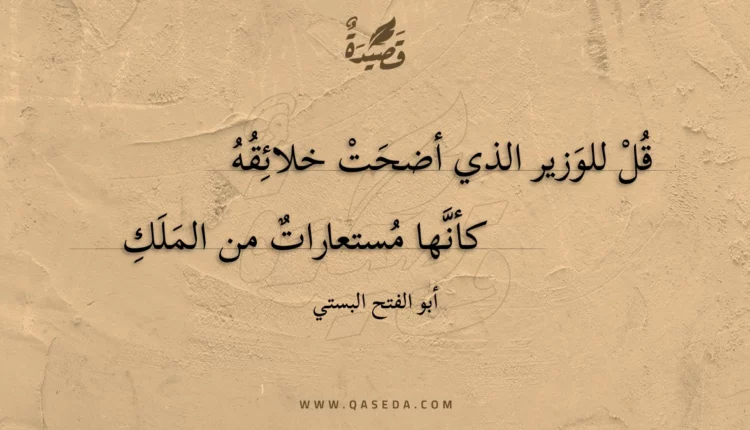 قَصِيْدَةٌ
قُلْ للوَزير الذي أضحَتْ خلائِقُهُ
كأنَّها مُستعاراتٌ من المَلَكِ
أبو الفتح البستي
WWW.QASEDA.COM